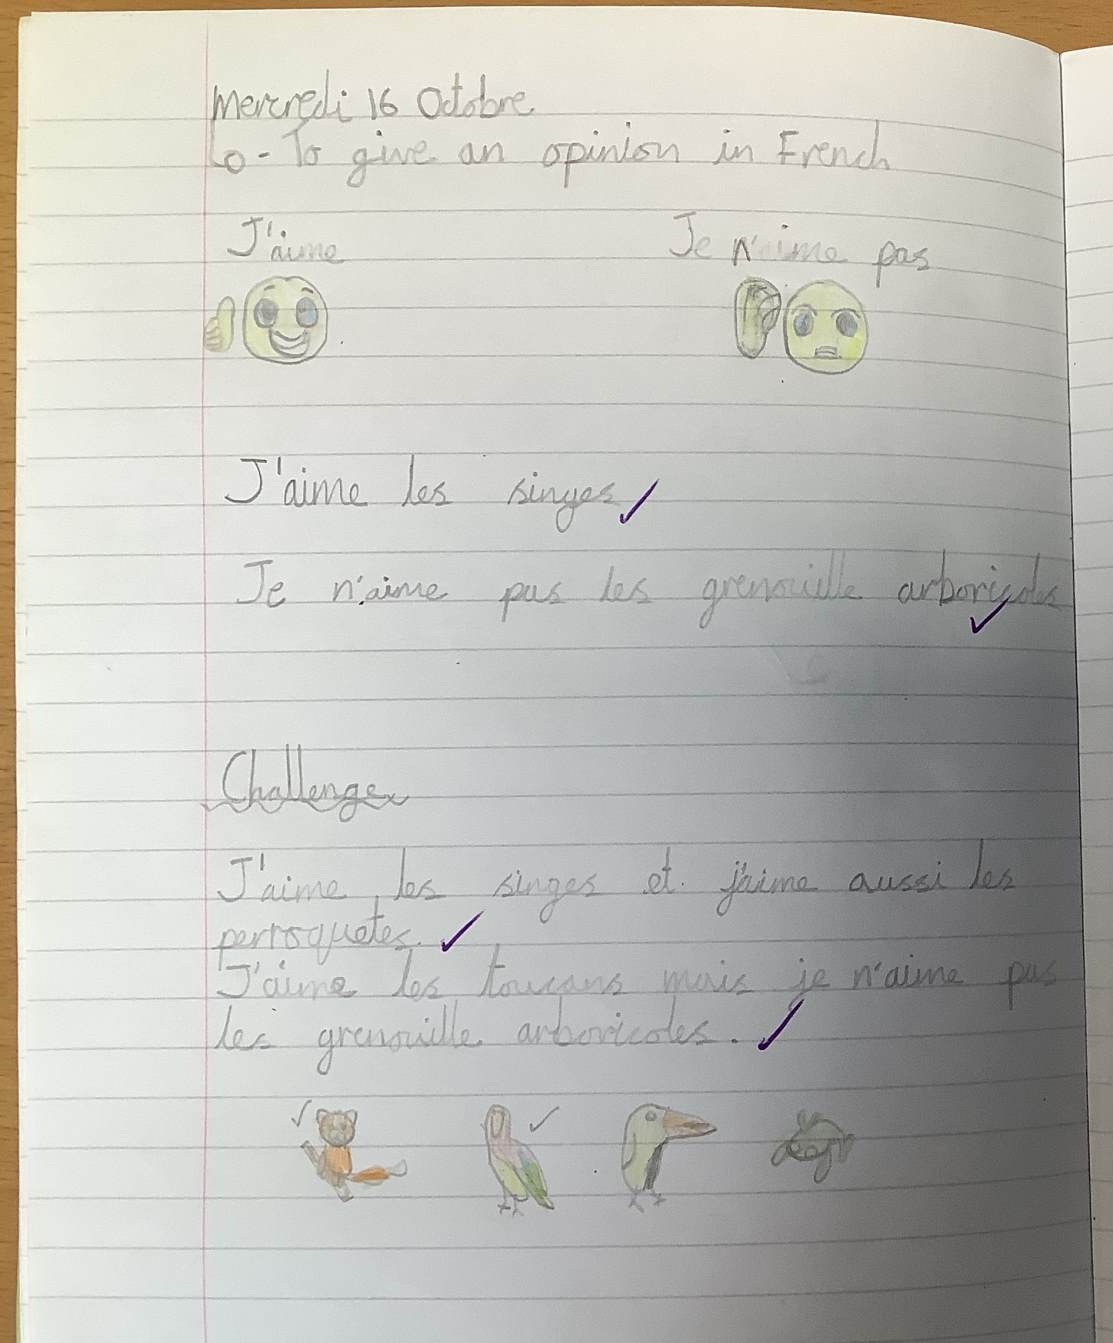 Mercredi 16 Octobre
Lo - To give an opinion in French
J'aime
Je n'aime pas
J'aime les singes
Je n'aime pas les grenouille arboricoles
Challenge
J'aime les singes et j'aime aussi les
perroquetes.
J'aime les toucans mais je n'aime pas
les grenouille arboricoles.